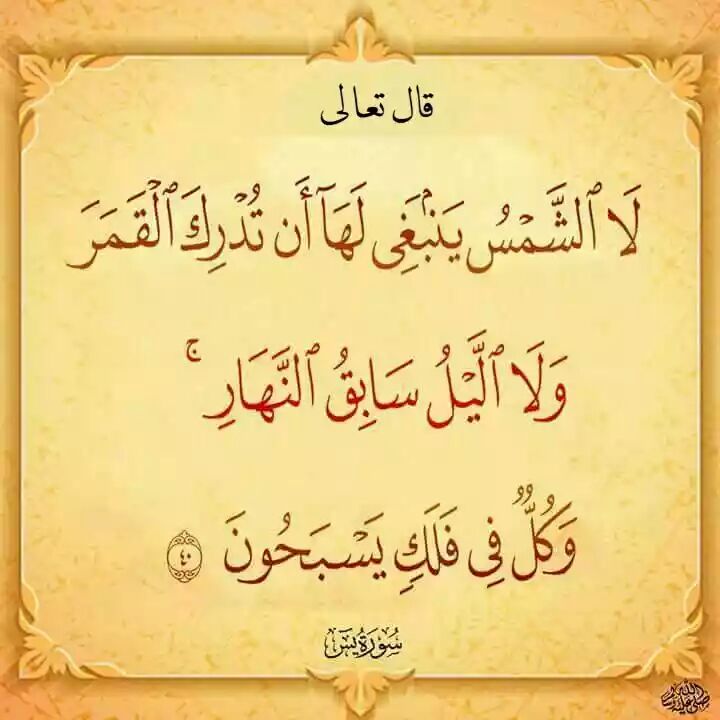 قال تعالى
لَا ٱلشَّمْسُ يَنۢبَغِى لَهَآ أَن تُدْرِكَ ٱلْقَمَرَ
وَلَا ٱلَّيْلُ سَابِقُ ٱلنَّهَارِ ۚ
وَكُلٌّ فِى فَلَكٍ يَسْبَحُونَ ٤٠
سُورَةُ يسٓ
صلى الله عليه وسلم